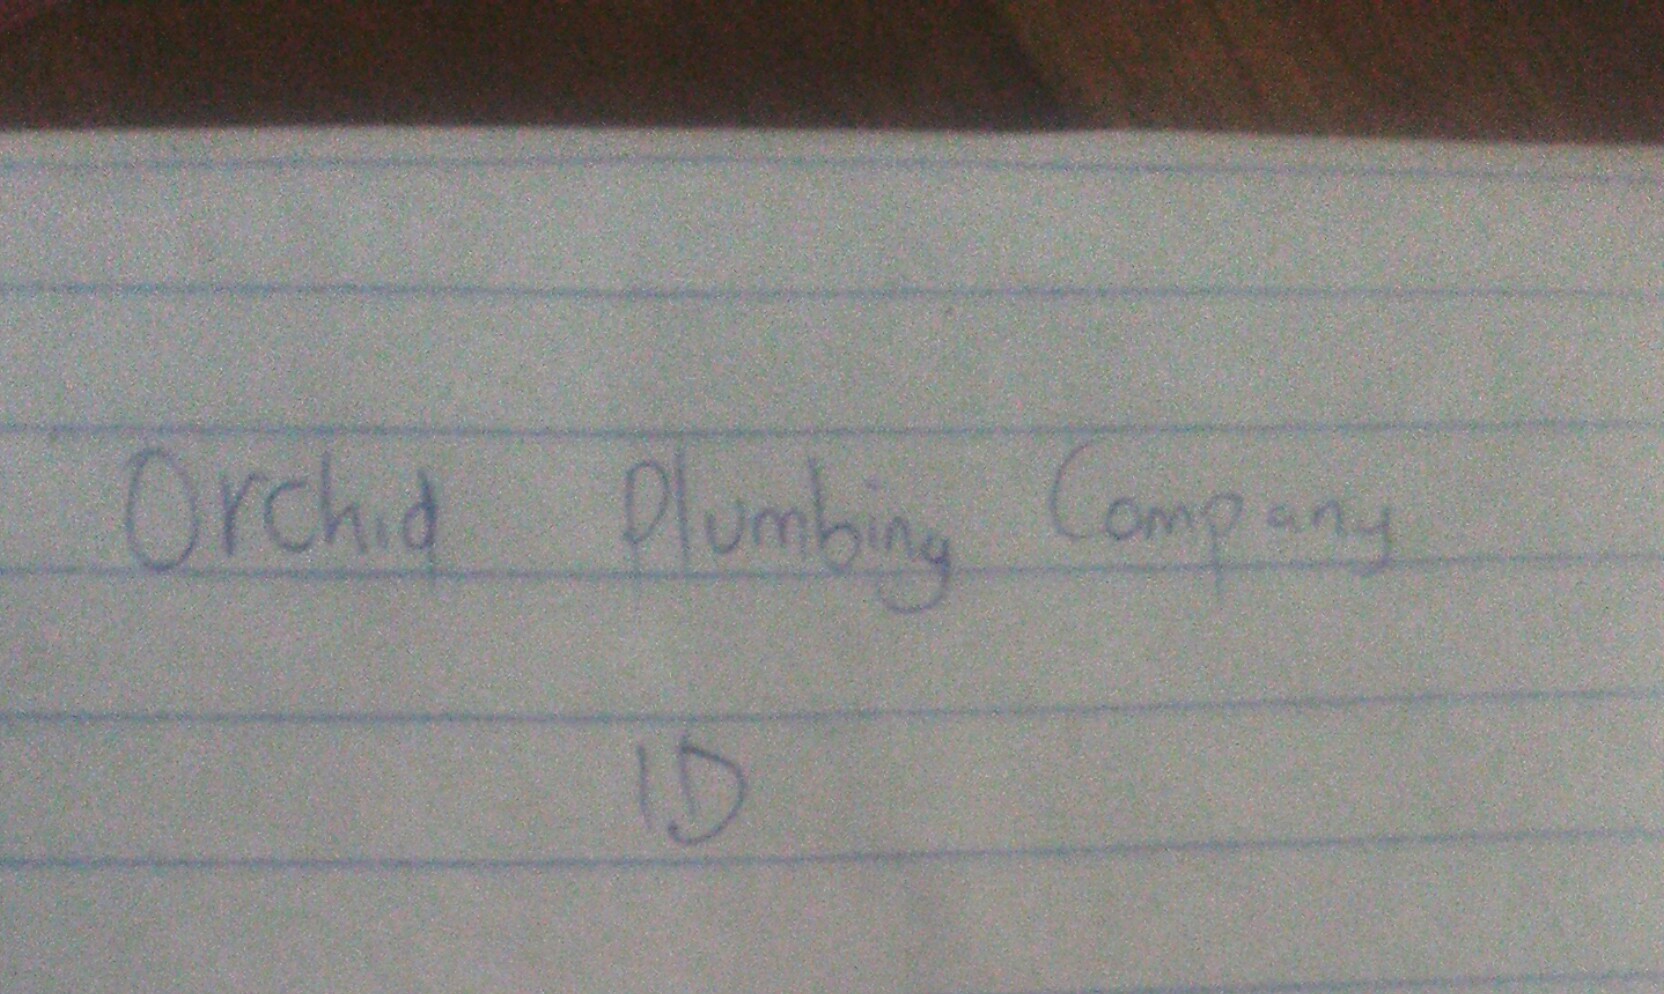 Orchid Plumbing Company
ID